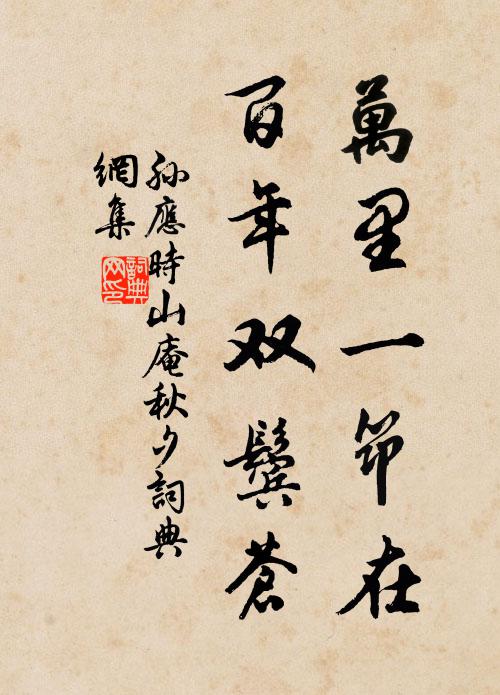 萬里一筇在
百年双鬢蒼
孫應時山庵秋夕詞典
網集
詞典
网印